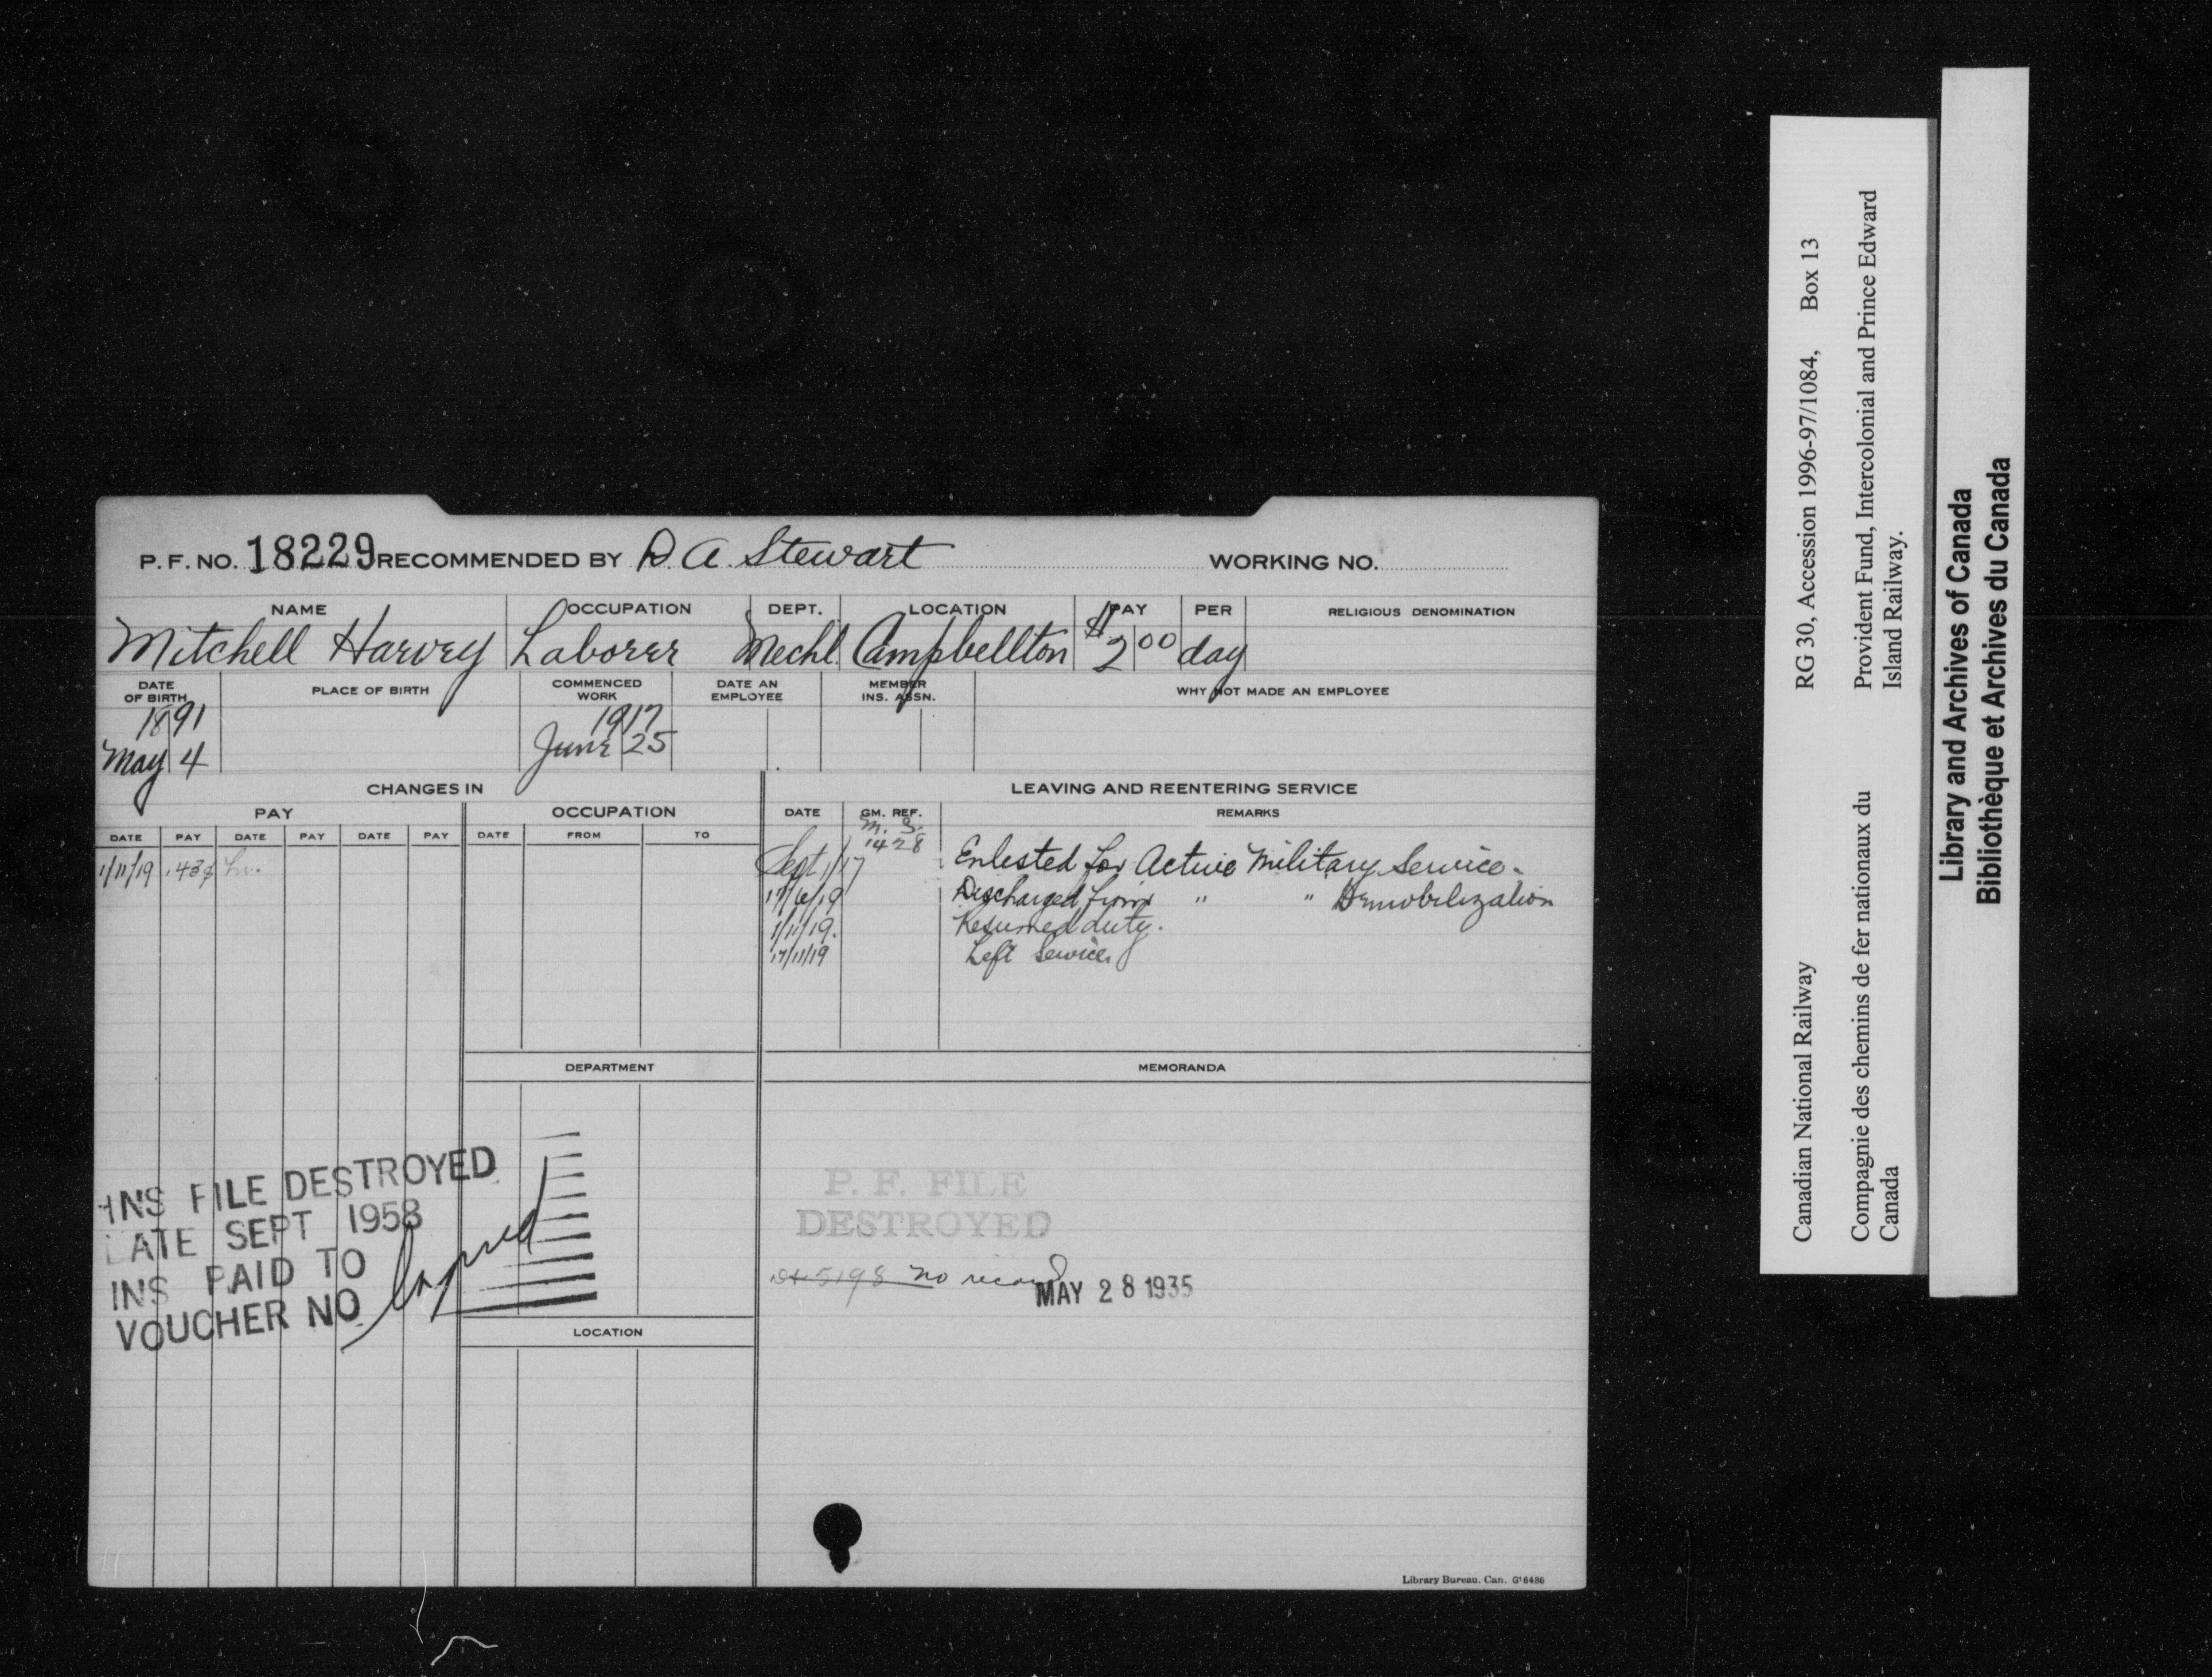 P. F. NO. 18229 RECOMMENDED BY D. A. Stewart WORKING NO.
NAME OCCUPATION DEPT. LOCATION PAY PER RELIGIOUS DENOMINATION
Mitchell Harvey Laborer Mechl. Campbellton $2 00 day
DATE OF BIRTH PLACE OF BIRTH COMMENCED WORK DATE AN EMPLOYEE MEMBER INS. ASSN. WHY NOT MADE AN EMPLOYEE
1891 1917
May 4 June 25
CHANGES IN LEAVING AND REENTERING SERVICE
PAY OCCUPATION DATE GM. REF. REMARKS
DATE PAY DATE PAY DATE PAY DATE FROM TO
M. S.
1428
1/11/19 .43¢ hr.
Sept 1/17 Enlisted for Active Military Service.
17/6/19 Discharged from " " Demobilization
1/11/19. Resumed duty.
17/11/19 Left Service
DEPARTMENT MEMORANDA
INS FILE DESTROYED
DATE SEPT 1958
INS PAID TO
VOUCHER NO Lapsed
P. F. FILE
DESTROYED
5198 no record
MAY 28 1935
LOCATION
Library Bureau. Can. G'6486
Canadian National Railway RG 30, Accession 1996-97/1084, Box 13
Compagnie des chemins de fer nationaux du Provident Fund, Intercolonial and Prince Edward
Canada Island Railway.
Library and Archives of Canada
Bibliothèque et Archives du Canada